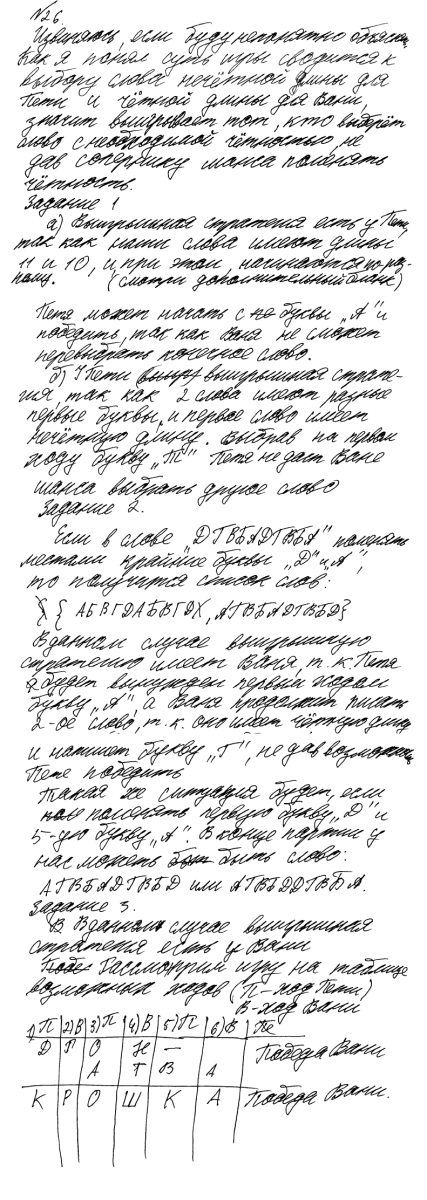 №26.
Извеняюсь, если буду непонятно объяснять
Как я понял суть игры сводится к
выбору слова нечётной длины для
Пети и чётной длины для Вани,
значит выигрывает тот, кто выберет
слово с необходимой чётностью, не
дав сопернику шанса поменять
чётность.
Задание 1
а) Выигрышная стратегия есть у Пети,
так как наши слова имеют длины
11 и 10, и, при этом, начинаются по-раз-
ному. (смотри дополнительный бланк)
Петя может начать с буквы „А" и
победить, так как Ваня не сможет
перевыбрать конечное слово.
б) У Пети выигрышная страте-
гия, так как 2 слова имеют разные
первые буквы, и первое слово имеет
нечётную длину. Выбрав на первом
ходу букву „Т" Петя не даст Ване
шанса выбрать другое слово
Задание 2.
Если в слове „ДГВБАДГВБА" поменять
местами крайние буквы „Д" и „А",
то получится список слов:
{ АБВГДАБВГДХ, АГВБАДГВБД}
В данном случае выигрышную
стратегию имеет Ваня, т.к. Петя
будет вынужден первым ходом
букву „А", а Ваня продолжит писать
2-ое слово, т.к. оно имеет чётную длину
и напишет букву „Г", не дав возможности
Пете победить
Такая же ситуация будет, если
поменять первую букву „Д" и
5-ую букву „А". В конце партии у
нас может быть слово:
АГВБАДГВБД или АГВБДДГВБА.
Задание 3.
В данном случае выигрышная
стратегия есть у Вани
Рассмотрим игру на таблице
возможных ходов (П-ход Пети)
В-ход Вани
1) П 2) В 3) П 4) В 5) П 6) В Пе
Д Г О Н —
А Г В А Победа Вани
К Р О Ш К А Победа Вани.